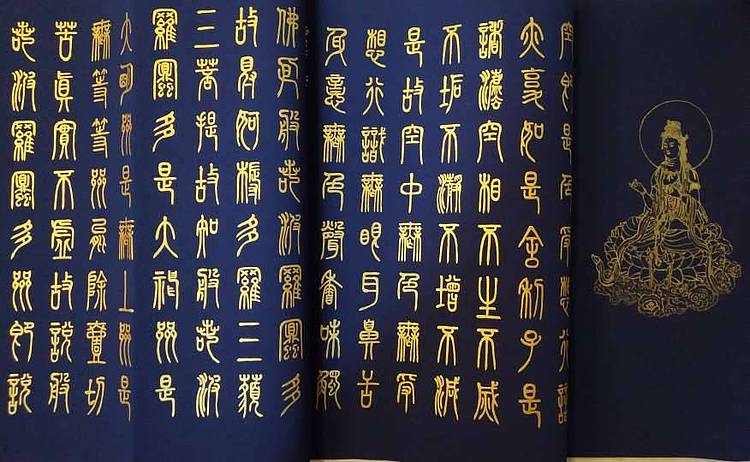 空即是色受想行識
亦复如是舍利子是
諸灋空相不生不滅
不垢不淨不增不減
是故空中無色無受
想行識無眼耳鼻舌
身意無色聲香味觸
佛依般若波羅蜜多
故得阿耨多羅三藐
三菩提故知般若波
羅蜜多是大神呪是
大明呪是無上呪是
無等等呪能除壹切
苦眞實不虛故說般
若波羅蜜多呪即說